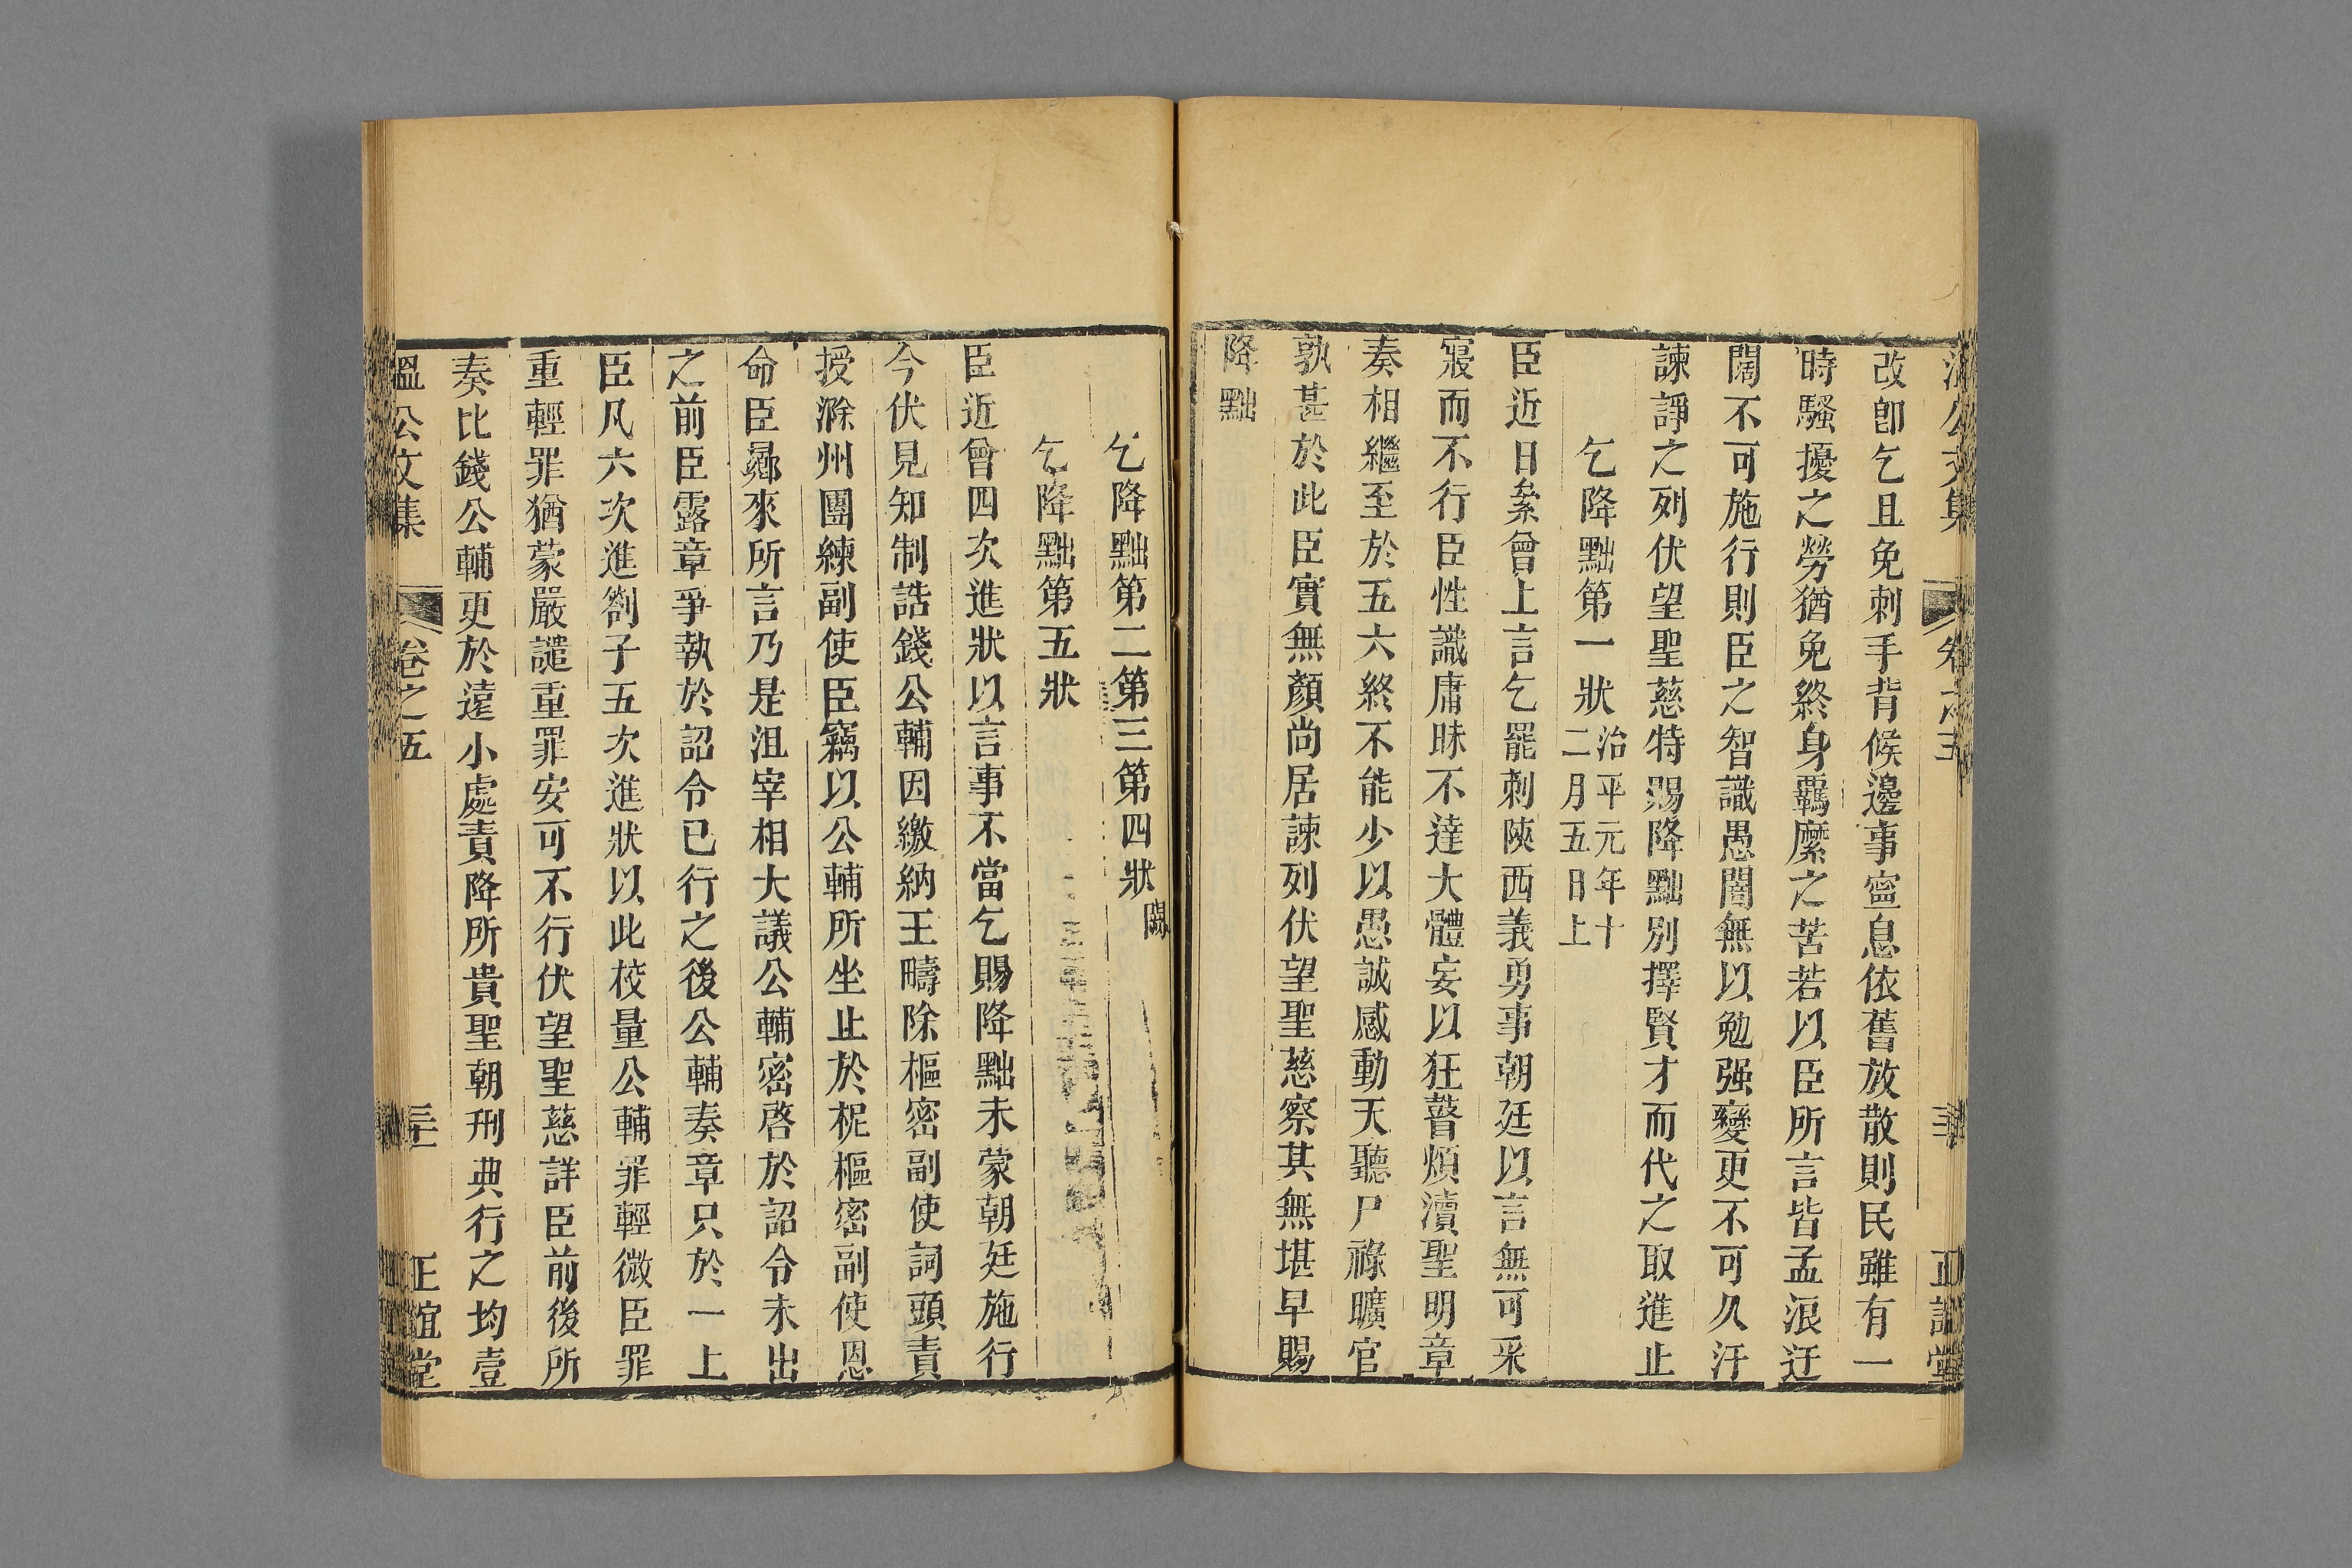 改卽乞且免刺手背候邊事寍息依舊放散則民雖有一
時騷擾之勞猶免終身羈縻之苦若以臣所言皆孟浪迂
闊不可施行則臣之智識愚闇無以勉强變更不可久汙
諫諍之列伏望聖慈特賜降黜別擇賢才而代之取進止
乞降黜第一狀治平元年十
二月五日上
臣近日絫曾上言乞罷刺陝西義勇事朝廷以言無可采
寢而不行臣性識庸昧不達大體妄以狂瞽煩瀆聖明章
奏相繼至於五六終不能少以愚誠感動天聽尸祿曠官
孰甚於此臣實無顏尚居諫列伏望聖慈察其無堪早賜
降黜
乞降黜第二第三第四狀闕
乞降黜第五狀
臣近曾四次進狀以言事不當乞賜降黜未蒙朝廷施行
今伏見知制誥錢公輔因繳納王疇除樞密副使詞頭責
授滁州團練副使臣竊以公輔所坐止於柅樞密副使恩
命臣曏來所言乃是沮宰相大議公輔密啓於詔令未出
之前臣露章爭執於詔令已行之後公輔奏章只於一上
臣凡六次進劄子五次進狀以此校量公輔罪輕微臣罪
重輕罪猶蒙嚴譴重罪安可不行伏望聖慈詳臣前後所
奏比錢公輔更於遠小處責降所貴聖朝刑典行之均壹
溫公文集 卷之五 正誼堂